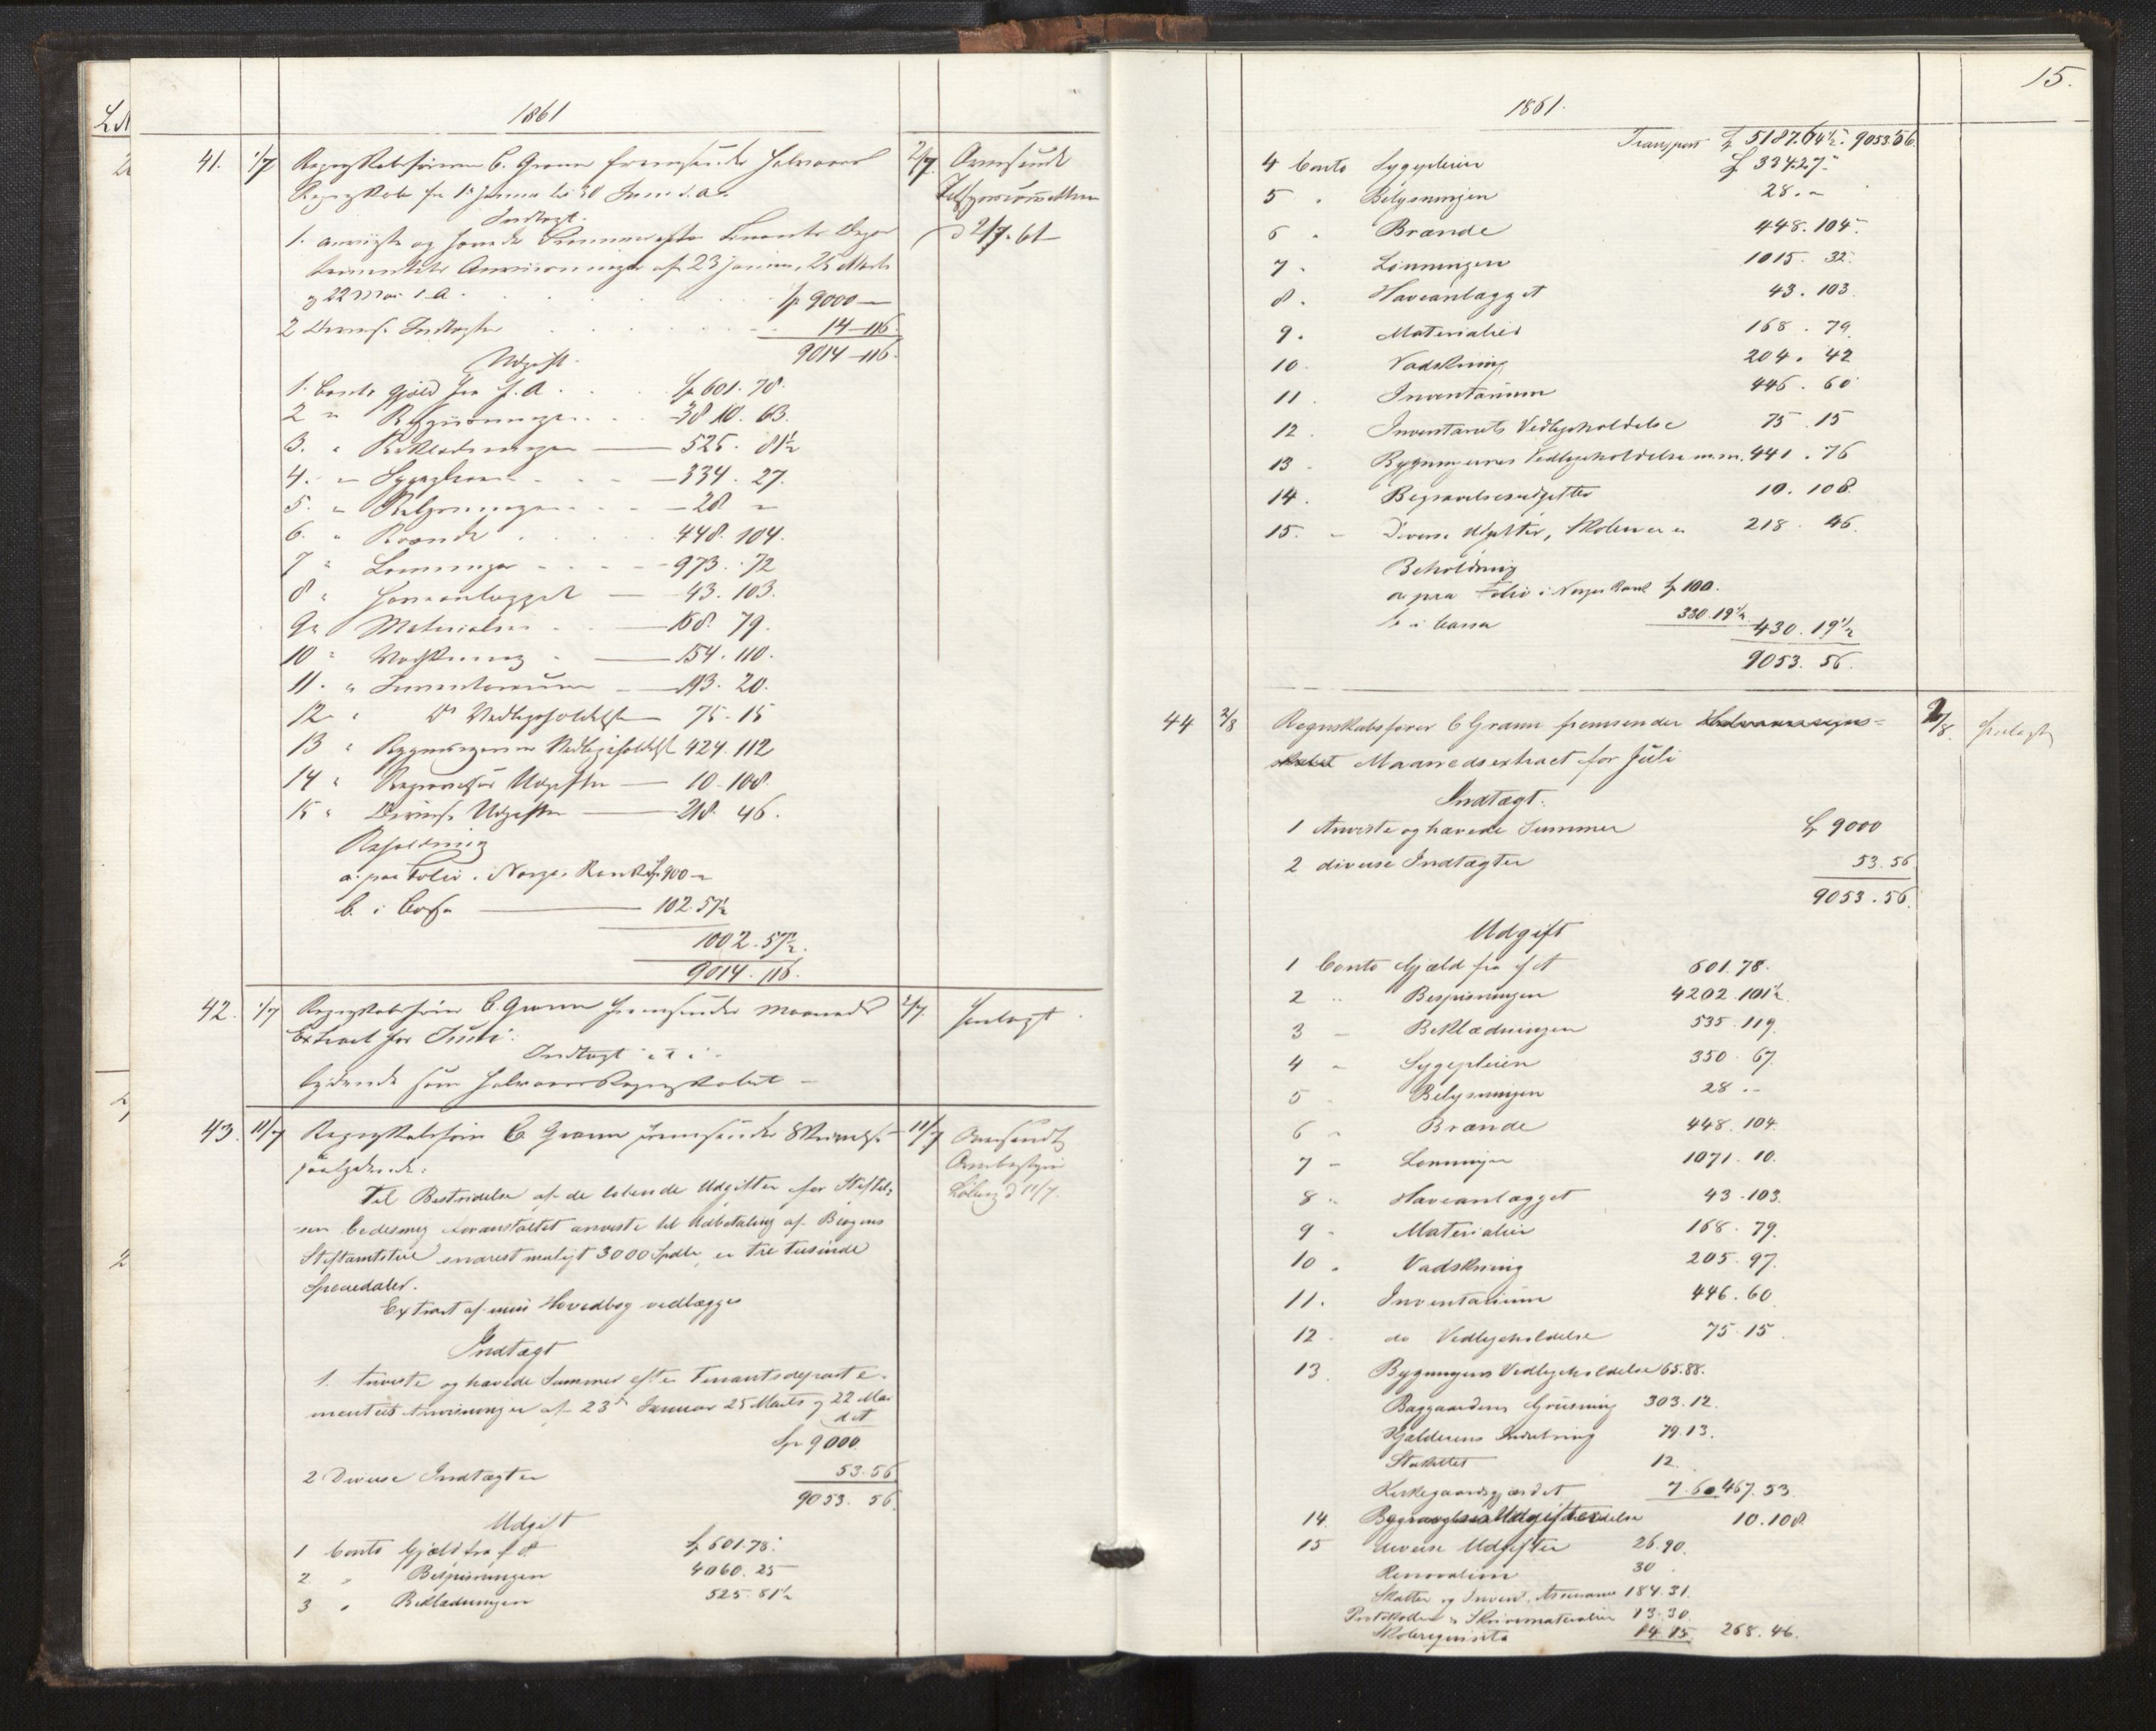 1861
41. 1/7 Regnskabsfører C. Gram fremsender Halvaars 2/7 Oversendt
Regnskab fra 1. Januar til 30 Juni d. A.
Indtægt.
1. anviste og hævede Summer efter Finants Depar d 2/7. 61
tementets Anvisninger af 23 Januar, 25 Marts
og 22 Mai d. A. Sp 9000 —
2 Diverse Indtægter 14 - 116.
9014 - 116.
Udgift.
1. Conto Gjæld fra f. A. Sp 601. 78.
2 " Bespisningen 3810. 63.
3. " Beklædningen — 525. 81½
4. " Sygepleien — 334. 27.
5. " Belysningen - 28 "
6. " Brænde 448. 104.
7 " Lønninger - 973. 72
8 " Haveanlægget — 43. 103.
9 " Materialier — 168. 79.
10 " Vadskning — 154. 110.
11. " Inventarium — 193. 20.
12 " Do Vedligeholdelse — 75. 15
13 " Bygningernes Vedligeholdelse 424. 112
14 " Begravelses Udgifter — 10. 108.
15 " Diverse Udgifter — 218. 46.
Beholdning
a. paa Folio i Norges Bank Sp 900 "
b. i Cassa — 102. 57½
1002. 57½.
9014. 116.
42. 1/7 Regnskabsfører C. Gram fremsender Maaneds 2/7. henlagt
Extract for Juni.
Indtægt
lydende som Halvaars Regnskabet —
43. 11/7 Regnskabsfører C Gram fremsender Skrivelse 11/7 Oversendt
saalydende:
Til Bestridelse af de løbende Udgifter for Stiftel- d 11/7.
sen bedes mig foranstaltet anviste til Udbetaling af Bergens
Stiftamtstue snarest muligt 3000 Spdlr, er tre tusinde
Speciedaler.
Extract af min Hovedbog vedlægges
Indtægt
1. Anviste og hævede Summer efter Finantsdeparte-
mentets Anvisninger af 23de Januar 25 Marts og 22 Mai
d A
Sp 9000.
2 Diverse Indtægter 53. 56
9053. 56.
Udgift
1 Conto Gjæld fra f. A. Sp 601. 78.
2 " Bespisningen 4060. 25
3 " Beklædningen 525. 81½
15.
1861.
Transport Sp 5187. 64½. 9053. 56.
4 Conto Sygepleien Sp 334. 27.
5 " Belysningen 28. "
6 " Brænde 448. 104.
7 " Lønningen 1015. 32.
8 " Haveanlægget 43. 103.
9. Materialier 168. 79.
10 Vadskning 204. 42
11. Inventarium 446. 60
12. Inventariets Vedligeholdelse 75. 15
13 Bygningernes Vedligeholdelse m.m. 441. 76
14. Begravelsesudgifter 10. 108.
15. " Diverse Udgifter, Skolen 218. 46.
Beholdning
a paa Folio i Norges Bank Sp 100.
b i Cassa 330. 19½ 430. 19½
9053. 56.
44 2/8 Regnskabsfører C Gram fremsender Halvaarsregns- 2/8. henlagt
skabet Maanedsextract for Juli
Indtægt.
1 Anviste og hævede Summer Sp 9000
2 diverse Indtægter 53. 56
9053. 56.
Udgift
1 Conto Gjæld fra f A 601. 78.
2 " Bespisningen 4202. 101½
3 — Beklædningen 535. 119.
4 " Sygepleien 350. 67.
5 " Belysningen 28. "
6 " Brænde 448. 104.
7 — Lønninger 1071. 10.
8 " Haveanlægget 43. 103.
9 " Materialier 168. 79.
10 " Vadskning 205. 97.
11. Inventarium 446. 60
12 do Vedligeholdelse 75. 15.
13 Bygningens Vedligeholdelse 65. 88.
Baggaardens Grusning 303. 12.
Kjælderens Indretning 79. 13.
Stakittet 12.
Kirkegaardsgjærdet 7. 60 467. 53.
14. Begravelses Udgifter 10. 108
15 diverse Udgifter 26. 90.
Renovation 30
Skatter og Assurance 184. 31.
Skrivematerialier 13. 30.
Skolerequisita 14. 15. 268. 46.